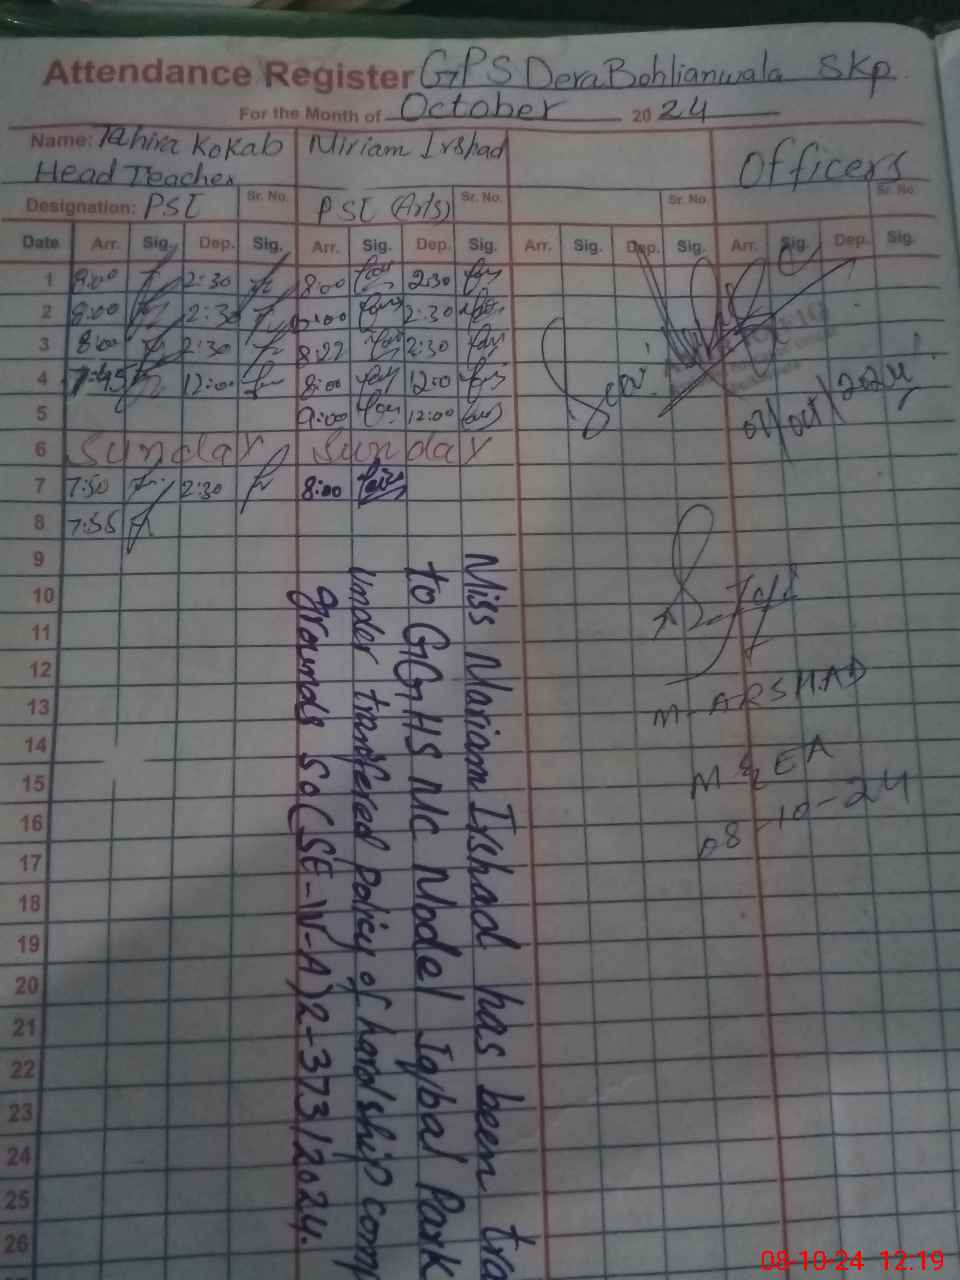 Attendance Register GPS Dera Bohlianwala Skp.
For the Month of October 2024
Name: Tahira Kokab Miriam Irshad Officers
Head Teacher
Sr. No. Sr. No. Sr. No. Sr. No.
Designation: PST PST (Arts)
Date Arr. Sig. Dep. Sig. Arr. Sig. Dep. Sig. Arr. Sig. Dep. Sig. Arr. Sig. Dep. Sig.
1 8:00 2:30 8:00 2:30
2 8:00 2:30 8:00 2:30
3 8:00 2:30 2:30
4 7:45 12:00 8:00 12:00
5 9:00 12:00
6 Sunday Sunday
7 7:50 2:30 8:00
8 7:55
9
10
11
12
13
14
15
16
17
18
19
20
21
22
23
24
25
26
Miss Mariam Irshad has been tra
to GGHS MC Model Iqbal Park
under transfered policy of hardship comp
grounds SO(SE-IV-A)2-373/2024.
Seen
07/Oct/2024
M-ARSHAD
M & EA
08-10-24
08-10-24 12.19